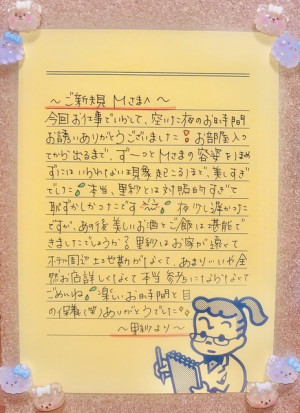 〜ご新規 Mさまへ〜
今回お仕事でいかして、空いた夜のお時間
お誘いありがとうございました❗お部屋入っ
てから出るまで、ず〜っとMさまの容姿をほめ
ずにはいわれない現象が起こるほど、美しすぎ
でした 本当、里紗とは対照的すぎて
恥ずかしかったです 夜少し遅かった
ですが、あの後美しいお酒とご飯は堪能で
きましたでしょうか？里紗はお家が遠くて
ホテル周辺土地勘がなくて、あまりいいや全
然お店詳しくなくて本当参考にならなくて
ごめんね 楽しいお時間と目
の保養(笑)ありがとうでした。
〜里紗より〜